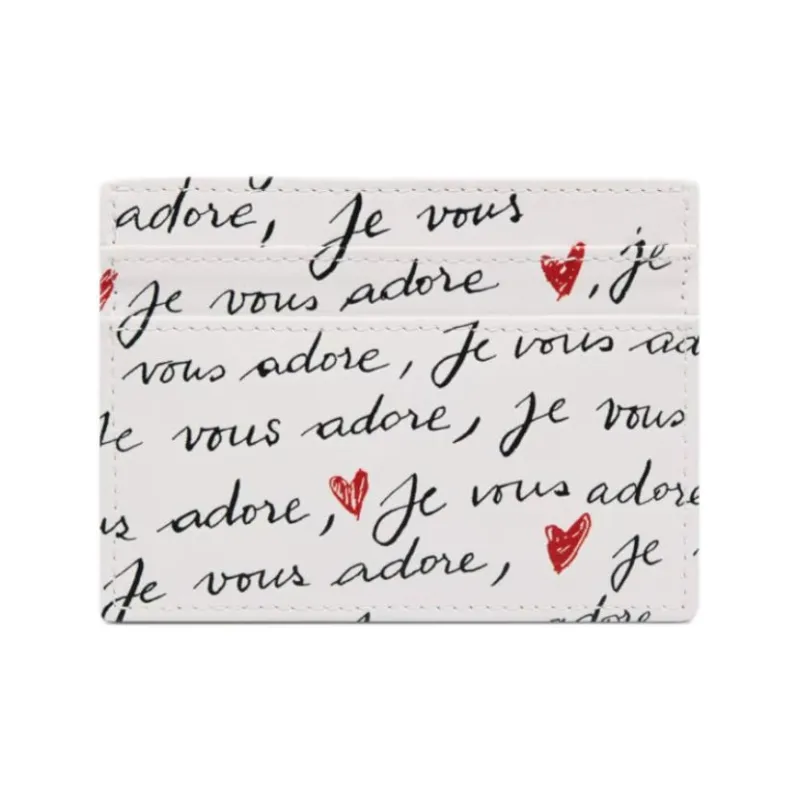 adore, Je vous
Je vous adore , je
vous adore, Je vous ad
Je vous adore, Je vous
us adore, Je vous adore
Je vous adore, je
adore